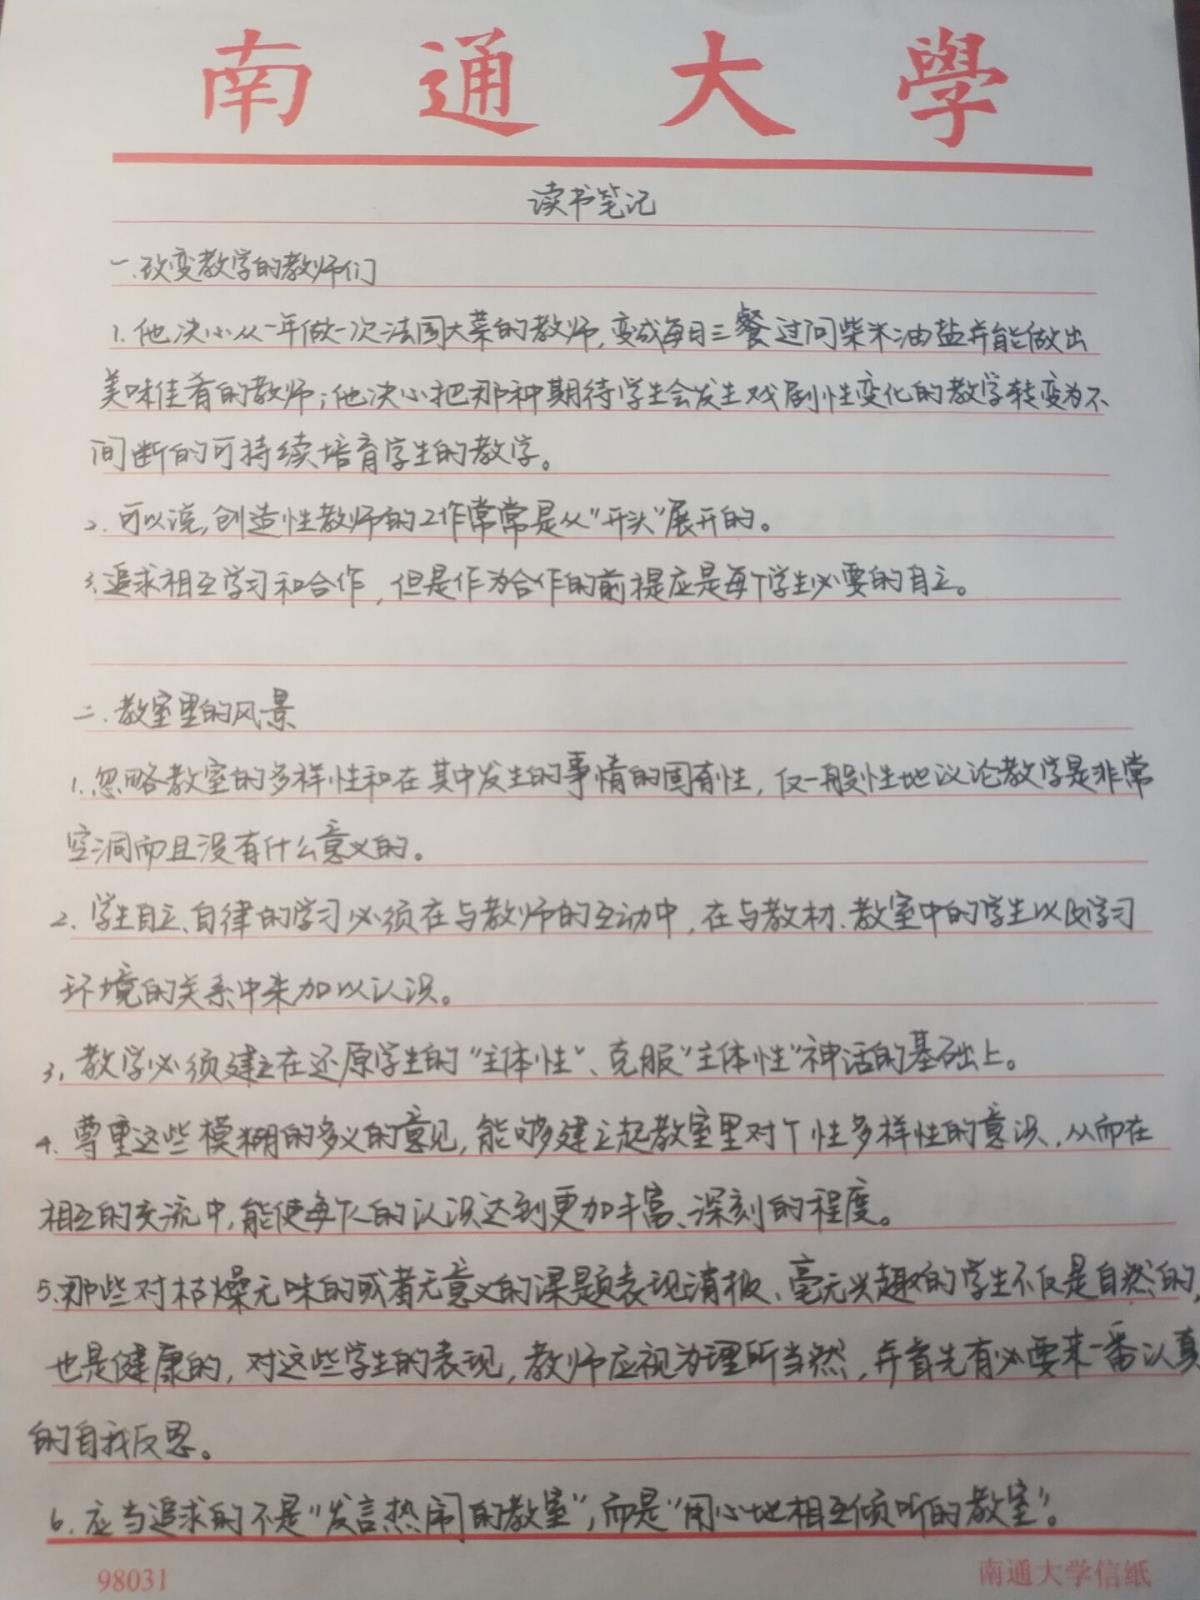 南通大學
读书笔记
一.改变教学的教师们
1.他决心从一年做一次法国大菜的教师,变成每日三餐过问柴米油盐并能做出
美味佳肴的教师;他决心把那种期待学生会发生戏剧性变化的教学转变为不
间断的可持续培育学生的教学。
2.可以说,创造性教师的工作常常是从“开头”展开的。
3.追求相互学习和合作,但是作为合作的前提应是每个学生必要的自立。
二.教室里的风景
1.忽略教室的多样性和在其中发生的事情的固有性,仅一般性地议论教学是非常
空洞而且没有什么意义的。
2.学生自立、自律的学习必须在与教师的互动中,在与教材、教室中的学生以及学习
环境的关系中来加以认识。
3.教学必须建立在还原学生的“主体性”、克服“主体性”神话的基础上。
4.尊重这些模糊的多义的意见,能够建立起教室里对个性多样性的意识,从而在
相互的交流中,能使每个人的认识达到更加丰富、深刻的程度。
5.那些对枯燥无味的或者无意义的课题表现消极、毫无兴趣的学生不仅是自然的,
也是健康的,对这些学生的表现,教师应视为理所当然,并首先有必要来一番认真
的自我反思。
6.应当追求的不是“发言热闹的教室”,而是“用心地相互倾听的教室”。
98031
南通大学信纸